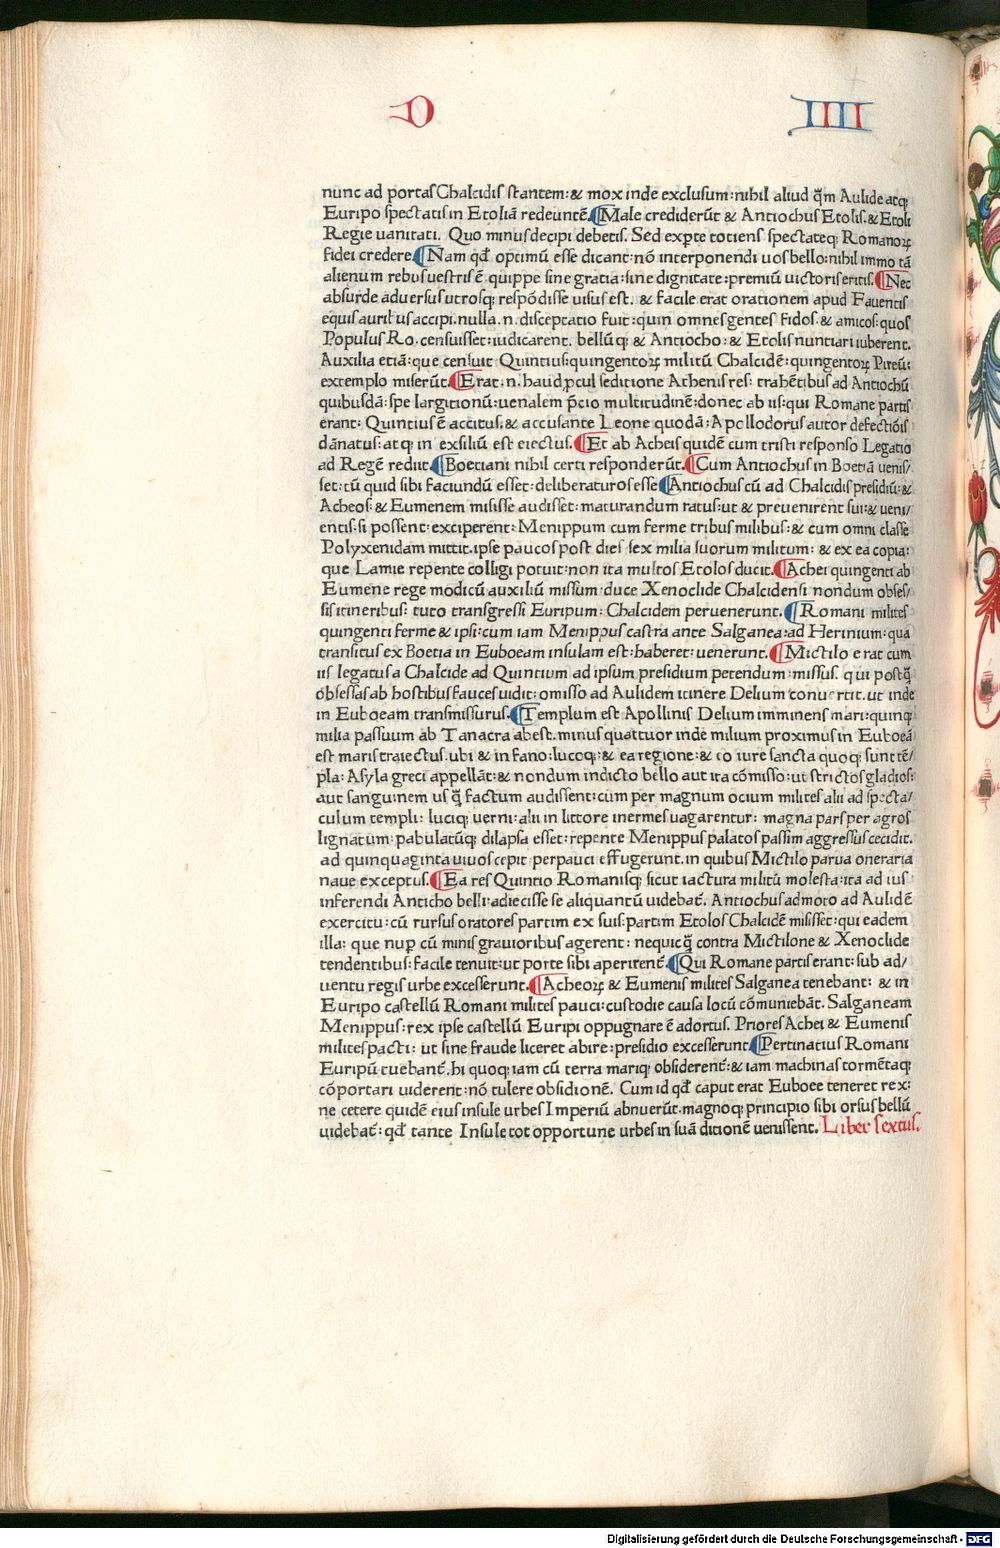 D IIII
nunc ad portas Chalcidis stantem: & mox inde exclusum: nihil aliud q̃m Aulide atq;
Euripo spectatis in Etoliã redeuntẽ. Male crediderũt & Antiochus Etolis. & Etoli
Regie uanitati. Quo minus decipi debetis. Sed exꝑte totiens spectateq; Romanoꝝ
fidei credere. Nam qđ optimũ esse dicant: nõ interponendi uos bello: nihil immo tã
alienum rebus uestris ẽ. quippe sine gratia: sine dignitate: premiũ uictoris eritis. Nec
absurde aduersus utrosq; respõdisse uisus est. & facile erat orationem apud Fauentis
equis auribus accipi. nulla .n. disceptatio fuit: quin omnes gentes Fidos. & amicos: quos
Populus Ro. censuisset: iudicarent. bellũq; & Antiocho: & Etolis nuntiari iuberent.
Auxilia etiã: que censuit Quintius: quingentoꝝ militũ Chalcidẽ: quingentoꝝ Pireũ:
extemplo miserũt. Erat .n. haud ꝓcul seditione Athenis res: trahẽtibus ad Antiochũ
quibusdã: spe largitionũ: uenalem p̃cio multitudinẽ: donec ab iis: qui Romane partis
erant: Quintius ẽ accitus. & accusante Leone quodã: Apollodorus autor defectiõis
dãnatus: atq; in exsiliũ est eiectus. Et ab Acheis quidẽ cum tristi responso Legatio
ad Regẽ rediit. Boetiani nihil certi responderũt. Cum Antiochus in Boetiã uenis/
set: tũ quid sibi faciundũ esset: deliberaturos esse. Antiochus cũ ad Chalcidis presidiũ: &
Acheos: & Eumenem misisse audisset: maturandum ratus: ut & preuenirent sui: & ueni/
entis: si possent: exciperent: Menippum cum ferme tribus milibus: & cum omni classe
Polyxenidam mittit. ipse paucos post dies sex milia suorum militum: & ex ea copia:
que Lamie repente colligi potuit: non ita multos Etolos ducit. Achei quingenti ab
Eumene rege modicũ auxiliũ missum: duce Xenoclide Chalcidensi nondum obses/
sis itineribus: tuto transgressi Euripum: Chalcidem peruenerunt. Romani milites
quingenti ferme & ipsi: cum iam Menippus castra ante Salganea: ad Herinium: qua
transitus ex Boetia in Euboeam insulam est: haberet: uenerunt. Mictilo erat cum
iis legatus a Chalcide ad Quintium ad ipsum presidium petendum: missus. qui postq̃
obsessas ab hostibus fauces uidit: omisso ad Aulidem itinere Delium conuertit. ut inde
in Euboeam transmissurus. Templum est Apollinis Delium imminens mari: quinq;
milia passuum ab Tanacra abest. minus quattuor inde milium proximus in Euboeã
est maris traiectus. ubi & in fano: lucoq; & ea regione: & eo iure sancta quoq; sunt tẽ/
pla: Asyla greci appellãt: & nondum indicto bello aut ita cõmisso: ut strictos gladios:
aut sanguinem us q̃ factum audissent: cum per magnum ocium milites alii ad specta/
culum templi: luciq; uerni: alii in littore inermes uagarentur: magna pars per agros
lignatum: pabulatũq; dilapsa esset: repente Menippus palatos passim aggressus cecidit.
ad quinquaginta uiuos cepit: perpauci effugerunt. in quibus Mictilo parua oneraria
naue exceptus. Ea res Quintio Romanisq; sicut iactura militũ molesta: ita ad ius
inferendi Anticho belli: adiecisse se aliquantũ uidebat̃. Antiochus admoto ad Aulidẽ
exercitu: cũ rursus oratores partim ex suis: partim Etolos Chalcidẽ misisset: qui eadem
illa: que nuꝑ cũ minis grauioribus agerent: nequicq̃ contra Mictilone & Xenoclide
tendentibus: facile tenuit: ut porte sibi aperirent̃. Qui Romane partis erant: sub ad/
uentu regis urbe excesserunt. Acheoꝝ & Eumenis milites Salganea tenebant: & in
Euripo castellũ Romani milites pauci: custodie causa locũ cõmuniebãt. Salganeam
Menippus: rex ipse castellũ Euripi oppugnare ẽ adortus. Priores Achei & Eumenis
milites pacti: ut sine fraude liceret abire: presidio excesserunt. Pertinatius Romani
Euripũ tuebant̃. hi quoq; iam cũ terra mariq; obsiderent̃: & iam machinas tormẽtaq;
cõportari uiderent: nõ tulere obsidionẽ. Cum id qđ caput erat Euboee teneret rex:
ne cetere quidẽ eius insule urbes Imperiũ abnuerũt. magnoq; principio sibi orsus bellũ
uidebat̃: qđ tante Insule tot opportune urbes in suã ditionẽ uenissent. Liber sextus.
Digitalisierung gefördert durch die Deutsche Forschungsgemeinschaft - DFG